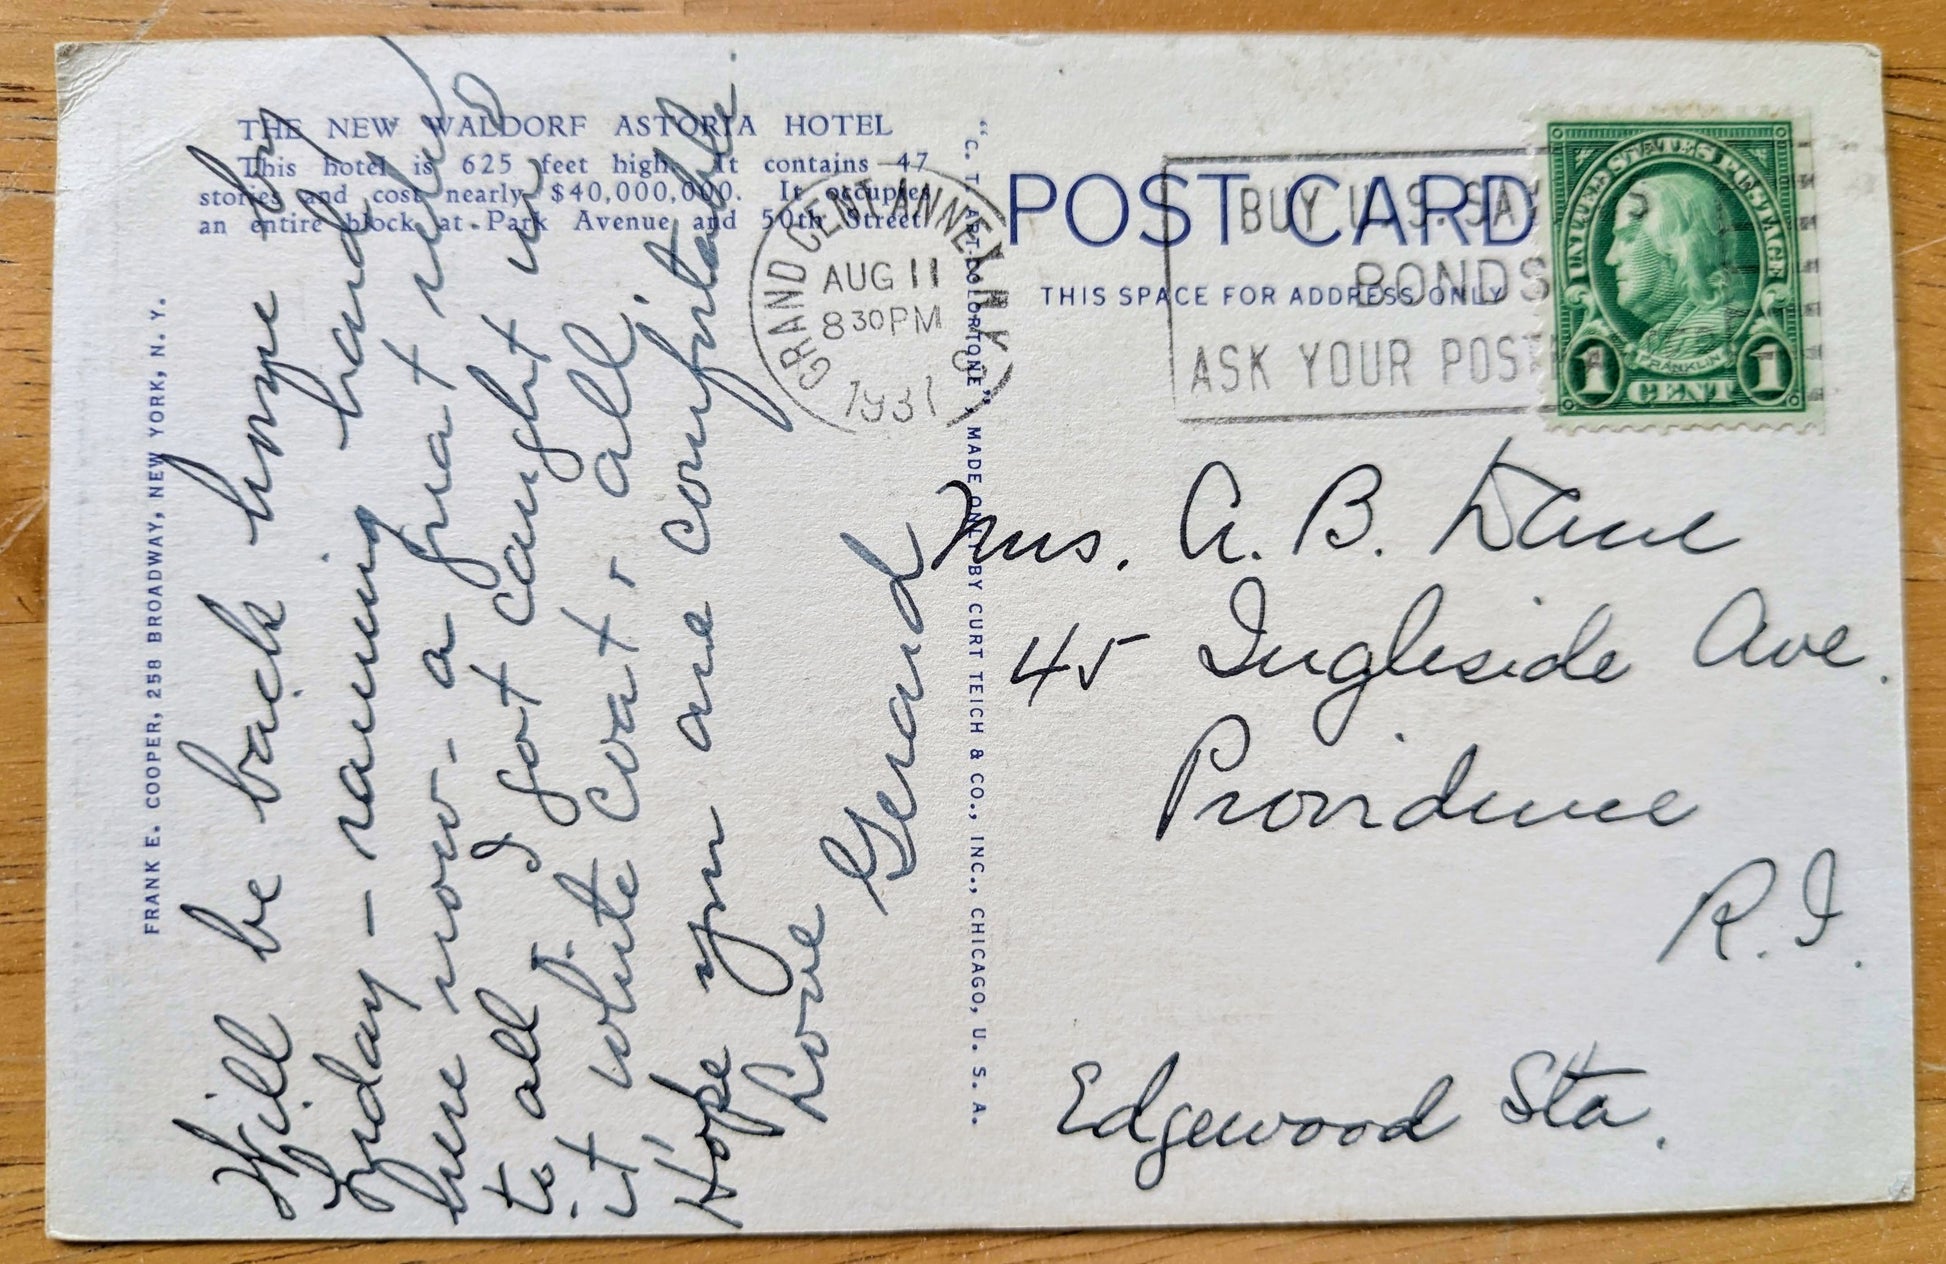 THE NEW WALDORF ASTORIA HOTEL
This hotel is 625 feet high. It contains 47
stories and cost nearly $40,000,000. It occupies
an entire block at Park Avenue and 50th Street.
FRANK E. COOPER, 258 BROADWAY, NEW YORK, N. Y.
Will be back home by
Friday - raining hard
here now - a great relief
to all. I got caught in
it white coat & all.
Hope you are comfortable.
Love
Gerard
"C. T. ART-COLORTONE" MADE ONLY BY CURT TEICH & CO., INC., CHICAGO, U. S. A.
POST CARD
THIS SPACE FOR ADDRESS ONLY
GRAND CENT. ANNEX N.Y.
AUG 11
8 30 PM
1937
BUY U. S. SAV S
BONDS
ASK YOUR POST
UNITED STATES POSTAGE
FRANKLIN
1 CENT 1
Mrs. A. B. Dane
45 Ingleside Ave.
Providence
R. I.
Edgewood Sta.